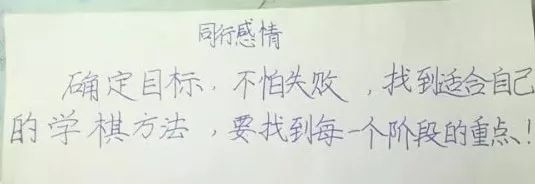 同行感情
确定目标，不怕失败，找到适合自己
的学棋方法，要找到每一个阶段的重点！